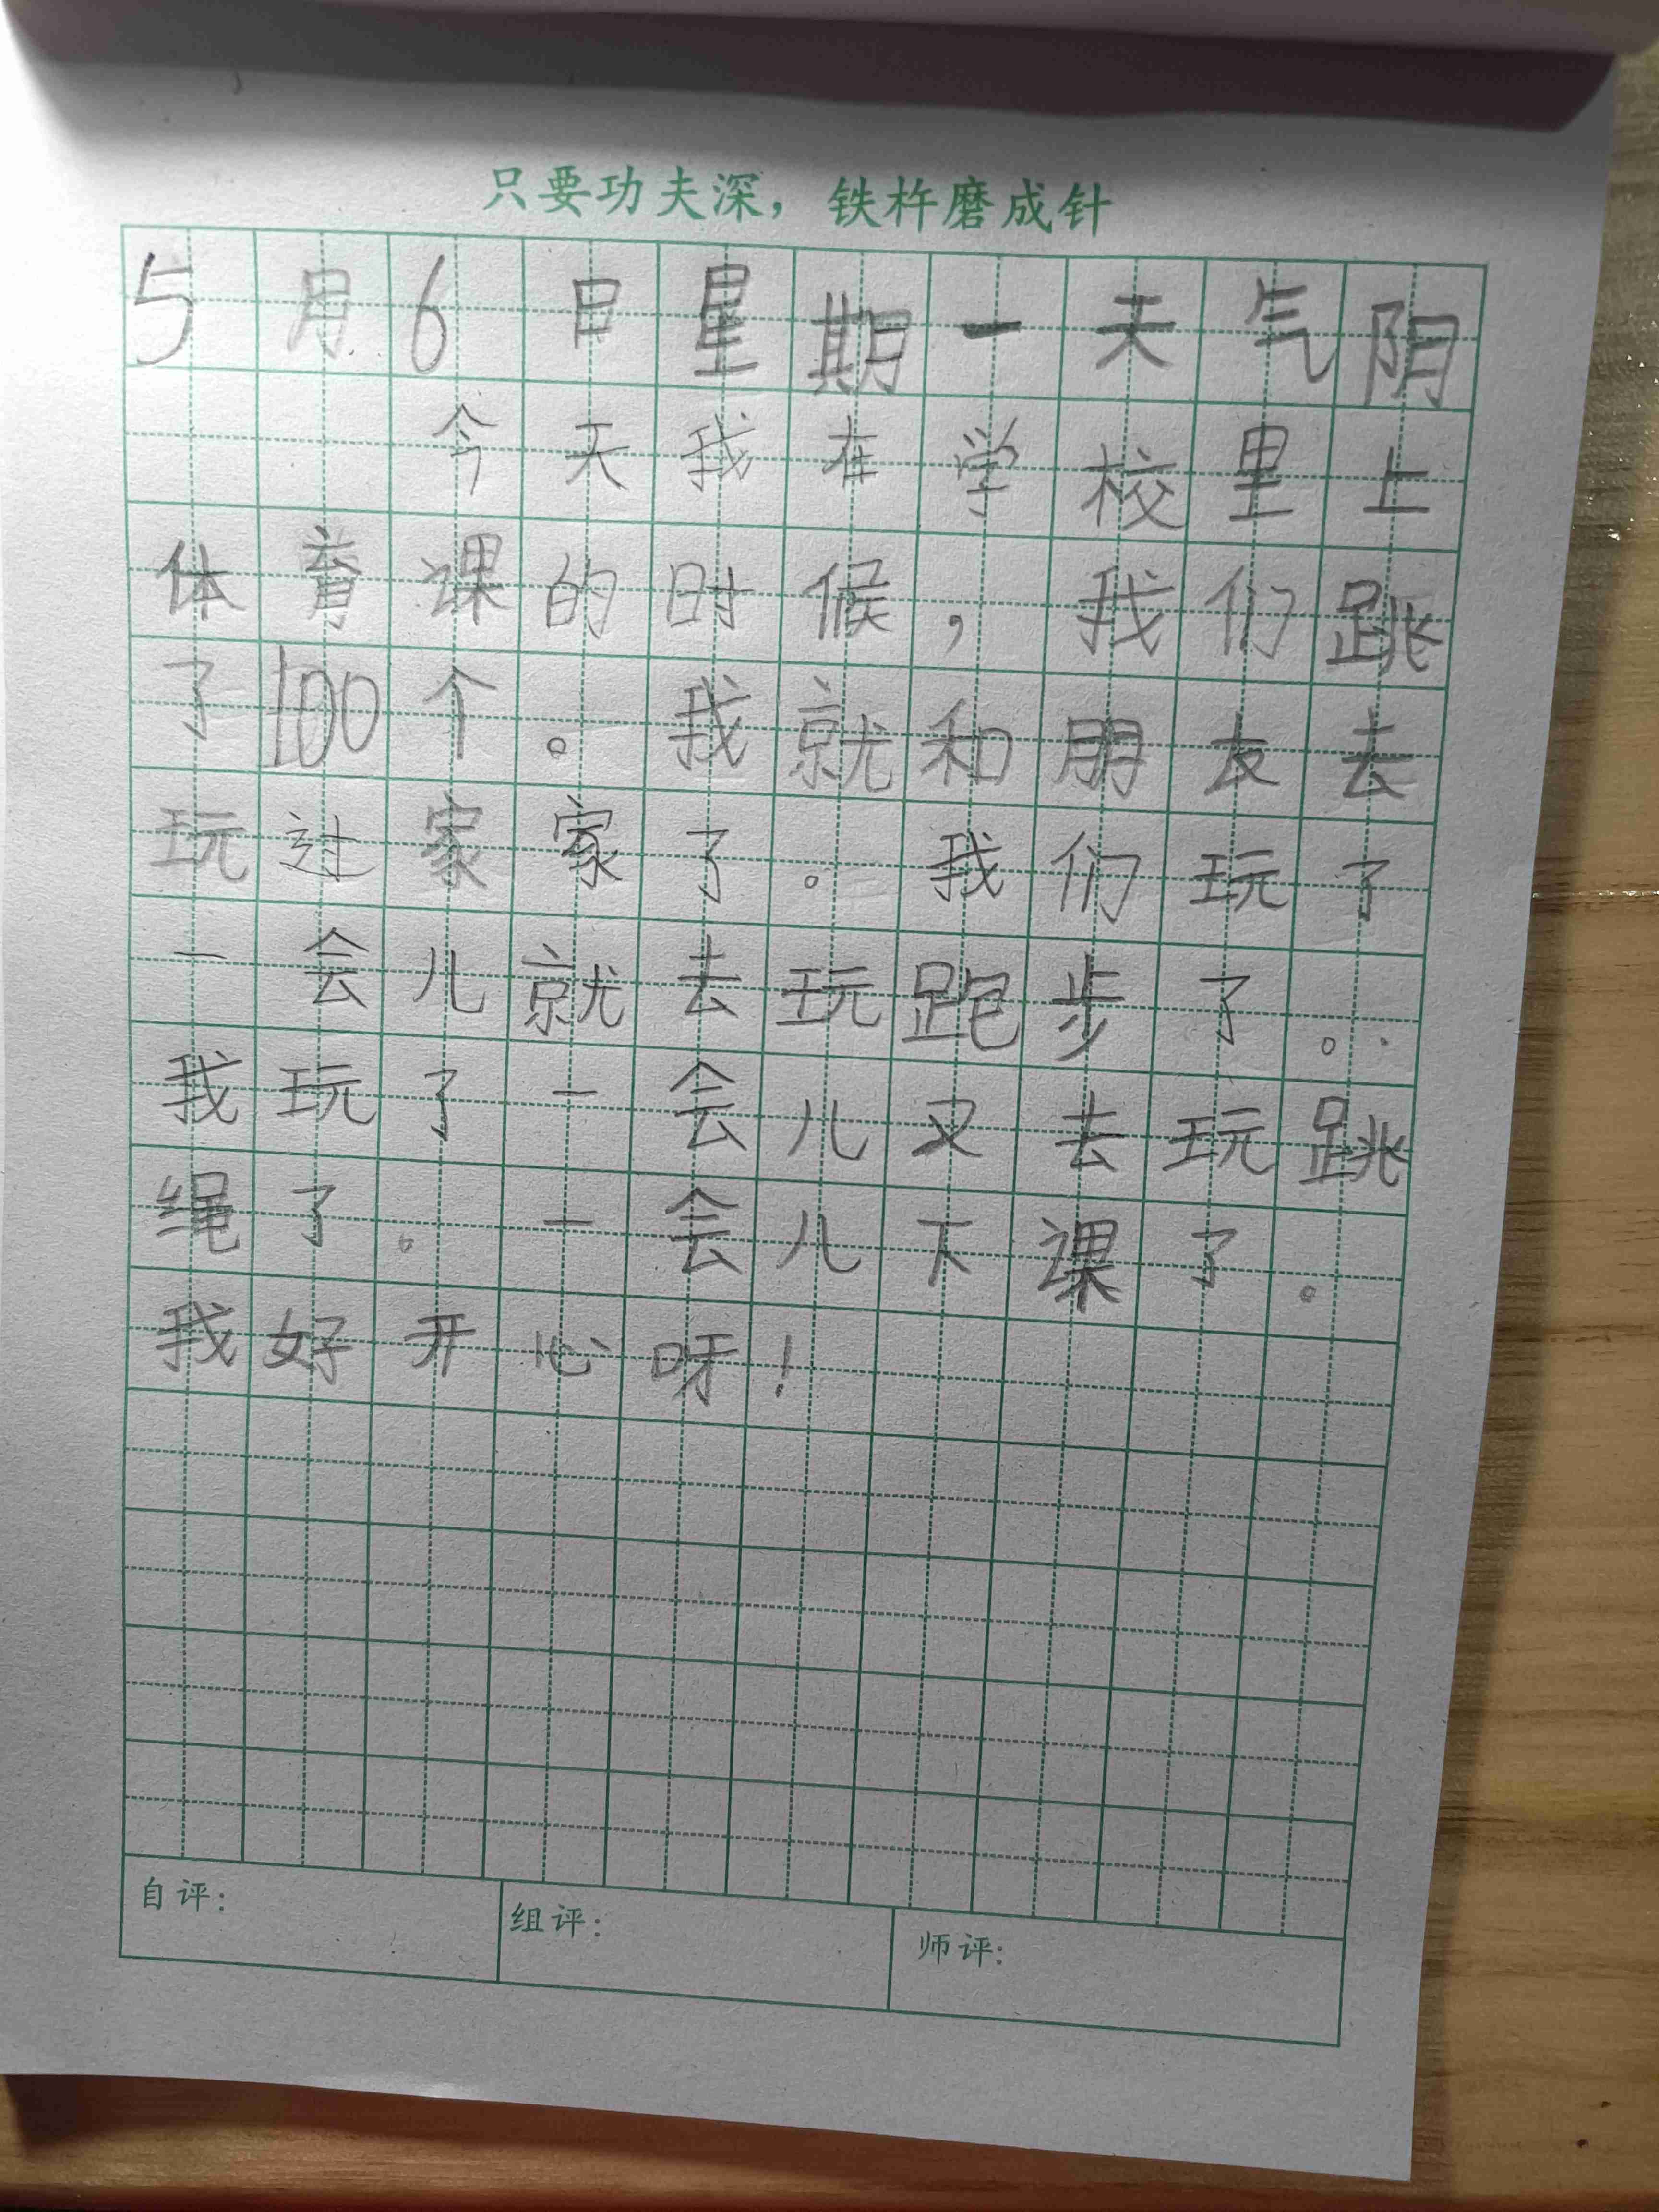 只要功夫深，铁杵磨成针
5月6日星期一天气阴
今天我在学校里上
体育课的时候，我们跳
了100个。我就和朋友去
玩过家家了。我们玩了
一会儿就去玩跑步了。
我玩了一会儿又去玩跳
绳了。一会儿下课了。
我好开心呀！
自评：
组评：
师评：